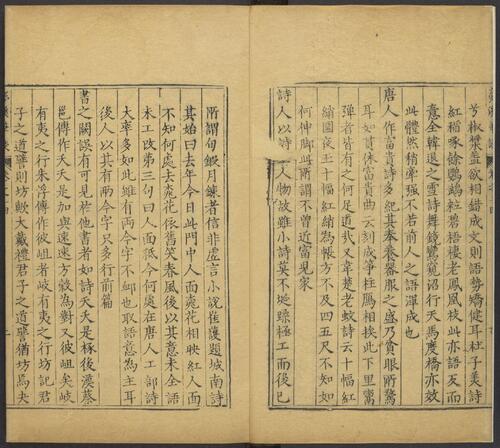 兮椒漿蓋欲相錯成文又則語勢矯健耳杜子美詩
紅稻啄餘鸚鵡粒碧梧棲老鳳凰枝此亦語反而
意全韓退之雪詩舞鏡鸞窺沼行天馬度橋亦效
此體然稍牽強不若前人之語渾成也
唐人作富貴詩多紀其奉養器服之盛乃貧眼所驚
耳如貫休富貴曲云刻成箏柱鴈相挨此下里鬻
彈者皆有之何足道哉又韋楚老蚊詩云十幅紅
綃圍夜玉十幅紅綃為帳方不及四五尺不知如
何伸脚此所謂不曾近富兒家
詩人以詩主人物故雖小詩莫不埏蹂極工而後已
所謂旬鍛月鍊者信非虛言小說崔護題城南詩
其始曰去年今日此門中人面桃花相映紅人面
不知何處去桃花依舊笑春風後以其意未全語
未工改第三句曰人面秪今何處在唐人工部詩
大率多如此雖有兩今字不䘏也取語意為主耳
後人以其有兩今字只多行前篇
書之闕誤有可見於他書者如詩天夭是椓後漢蔡
邕傳作夭夭是加與速速方轂為對又彼岨矣岐
有夷之行朱浮傳作彼岨者岐有夷之行坊記君
子之道譬則坊歟大戴禮君子之道譬猶坊焉夫